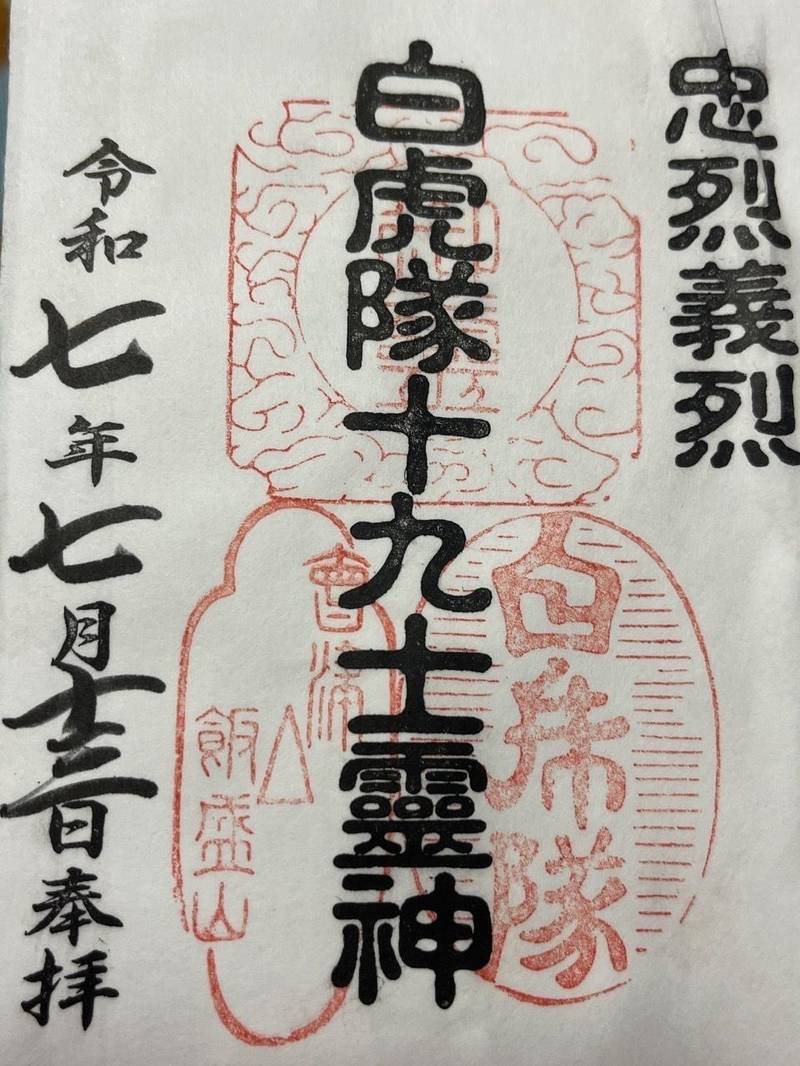 忠烈義烈
白虎隊十九士靈神
令和七年七月十三日奉拝
白虎隊
會津
飯盛山